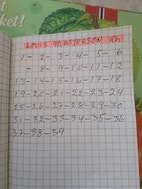 LOUIS MASTERSON
1 - 2 - 3 - 4 - 5 - 6
- 8 - 9 - 10 - 11 - 12
13 - 14 - 15 - 16 - 17 - 18
19 - 20 - 21 - 22 - 23 - 24
25 - 26 - 27 - 28 - 29 - 30
31 - 32 - 33 - 34 - 35 - 36
37 - 38 - 39